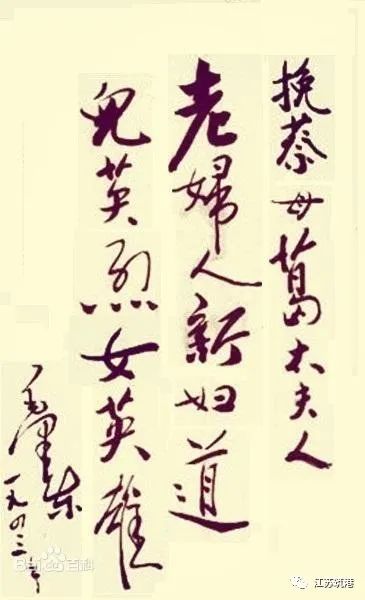 挽蔡母葛太夫人
老婦人新妇道
兒英烈女英雄
毛澤东
一九四三年
Bai度百科
江苏筑港